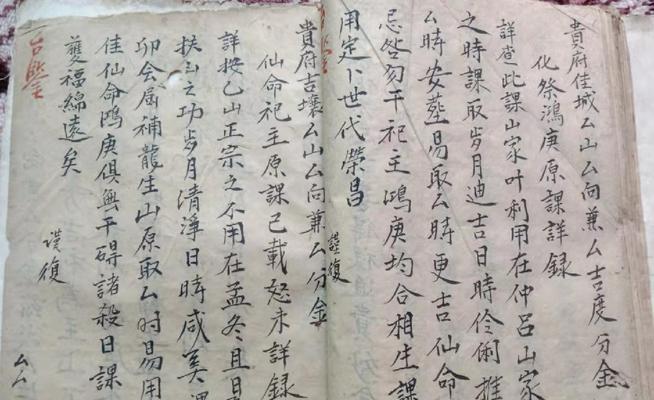 貴府佳城厶山厶向兼厶吉度分金
化祭鴻庚原課詳録
詳查此課山家叶利用在仲呂山家
之時課取歩月迪吉日時伶俐推
厶時安葬易取厶時更吉仙命
忌咎勿干祀主鴻庚均合相生課
用定卜世代榮昌
謹復
貴府吉壤厶山厶向兼厶分金
仙命祀主原課已載恕未詳録
詳按乙山正宗之不用在孟冬且日
扶山之功歩月清淨日時咸美課
卯会局補龍生山原取厶时易用
佳仙命鴻庚俱無干碍諸殺日課
獲福綿遠矣
謹復
厶厶
台鑒